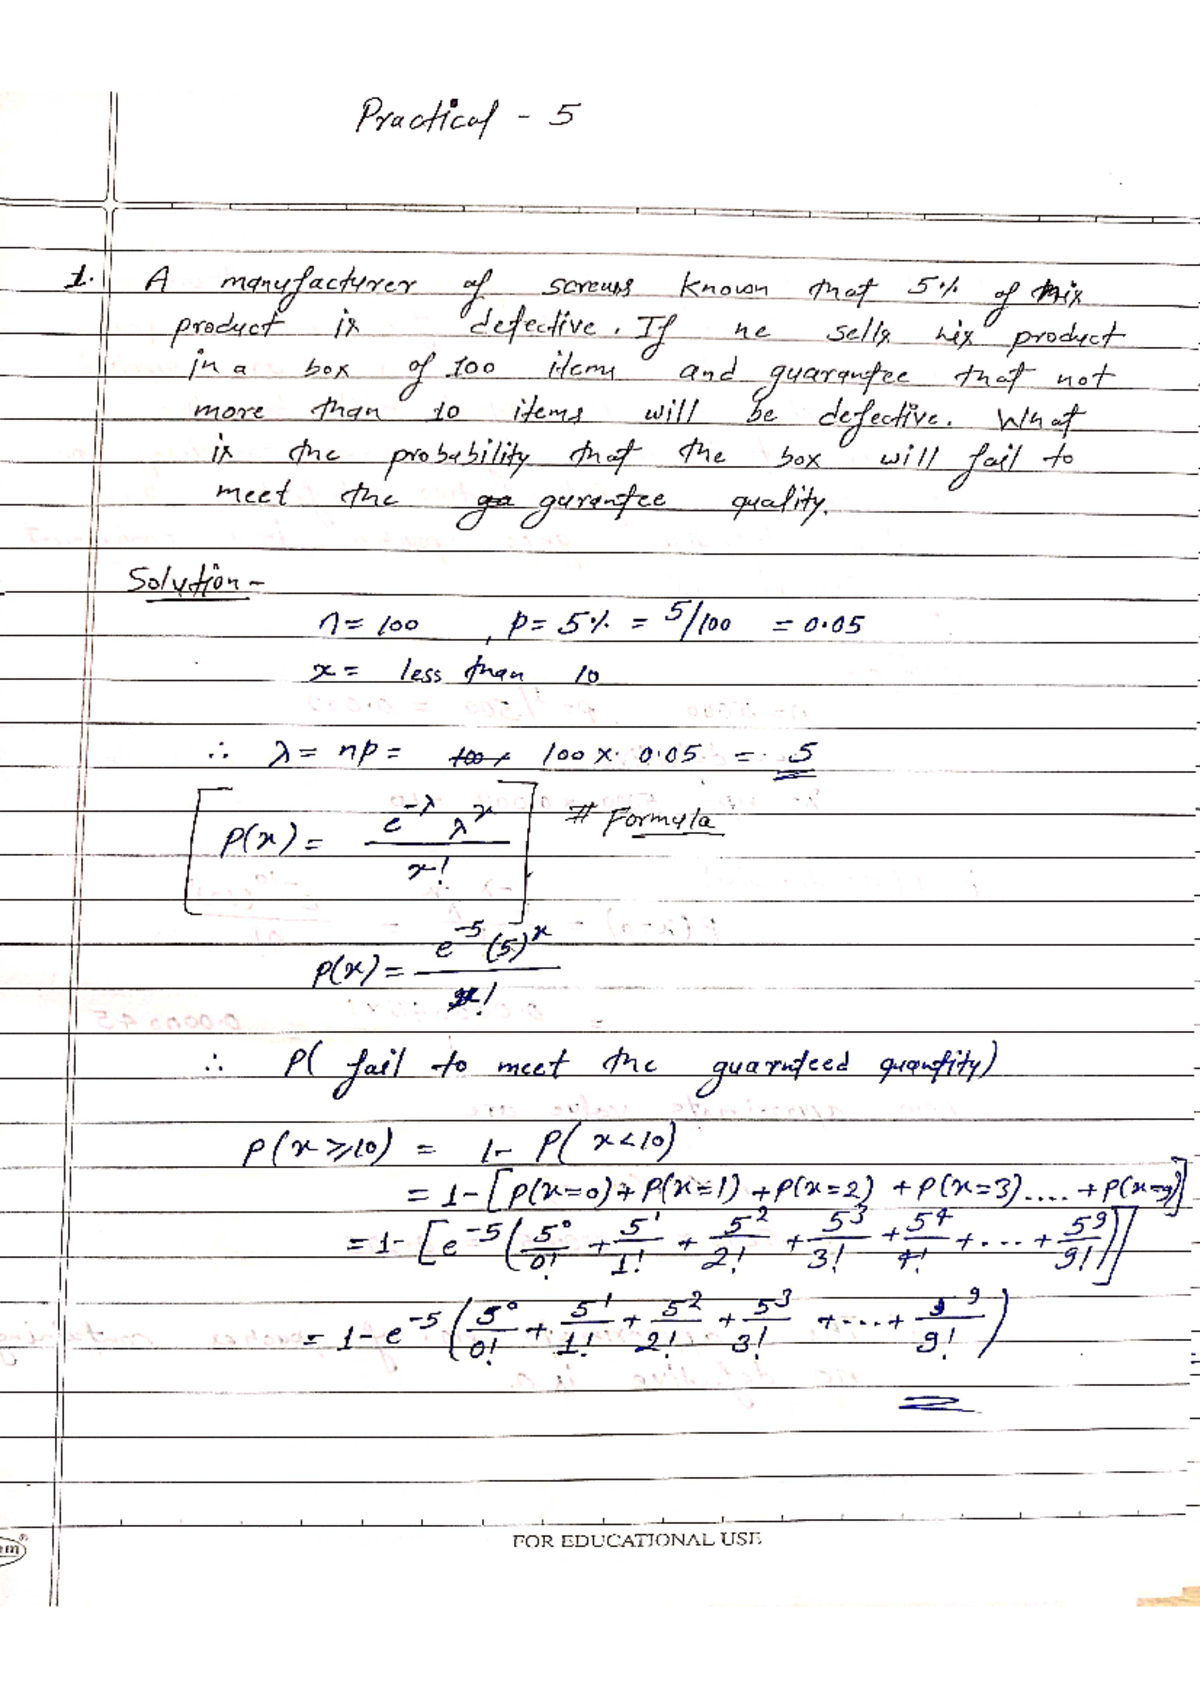 Practical - 5
1. A manufacturer of screws known that 5% of his
product is defective. If he sells his product
in a box of 100 items and guarantee that not
more than 10 items will be defective. What
is the probability that the box will fail to
meet the gurantee quality.
Solution -
n = 100 , p = 5% = 5/100 = 0.05
x = less than 10
∴ λ = np = 100 x 0.05 = 5
[P(x) = e^-λ λ^x / x!] # Formula
P(x) = e^-5 (5)^x / x!
∴ P( fail to meet the guarnteed quantity)
P(x ≥ 10) = 1- P( x<10)
= 1- [P(x=0)+P(x=1)+P(x=2) +P(x=3)....+P(x=9)]
= 1- [e^-5 (5^0/0! + 5^1/1! + 5^2/2! + 5^3/3! + 5^4/4! + ... + 5^9/9!)]
= 1- e^-5 (5^0/0! + 5^1/1! + 5^2/2! + 5^3/3! + ... + 5^9/9!)
FOR EDUCATIONAL USE